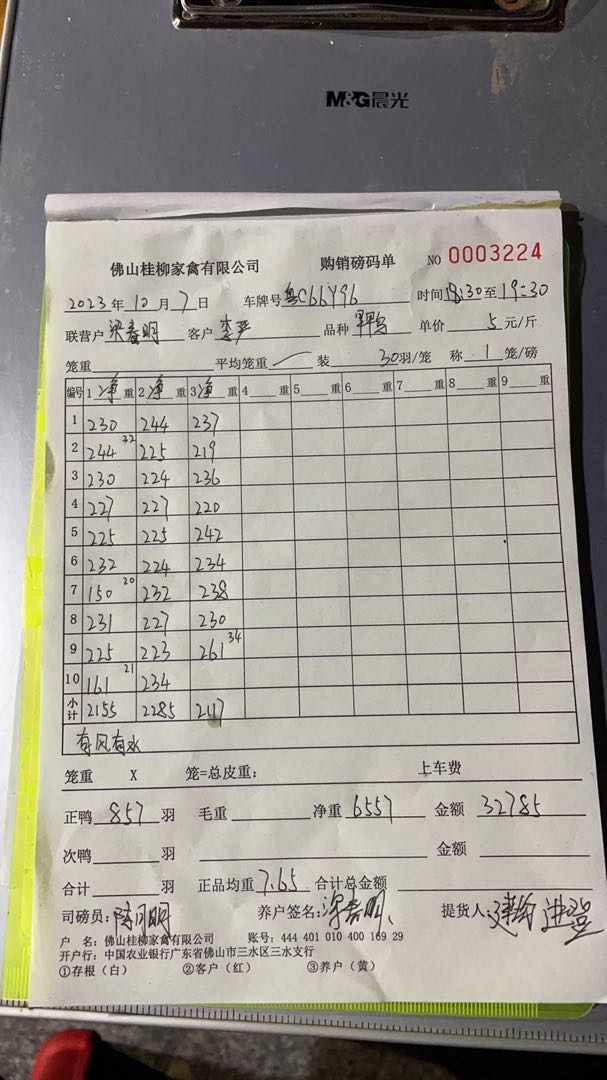 M&G晨光
佛山桂柳家禽有限公司 购销磅码单 NO 0003224
2023年10月7日 车牌号粤C66Y96 时间18:30至19:30
联营户梁春明 客户李严 品种 单价5元/斤
笼重 平均笼重 装30羽/笼 称1笼/磅
编号 1净重 2净重 3净重 4重 5重 6重 7重 8重 9重
1 230 244 237
2 244 32 225 219
3 230 224 236
4 227 227 220
5 225 225 242
6 232 224 234
7 150 20 232 238
8 231 227 230
9 225 223 261 34
10 161 21 234
小计 2155 2285 2117
有风有水
笼重 X 笼=总皮重: 上车费
正鸭857羽 毛重 净重6557 金额32785
次鸭 羽 金额
合计 羽 正品均重7.65 合计总金额
司磅员:陈月明 养户签名:梁春明 提货人:
户 名: 佛山桂柳家禽有限公司 账号: 444 401 010 400 169 29
开户行: 中国农业银行广东省佛山市三水区三水支行
①存根(白) ②客户(红) ③养户(黄)